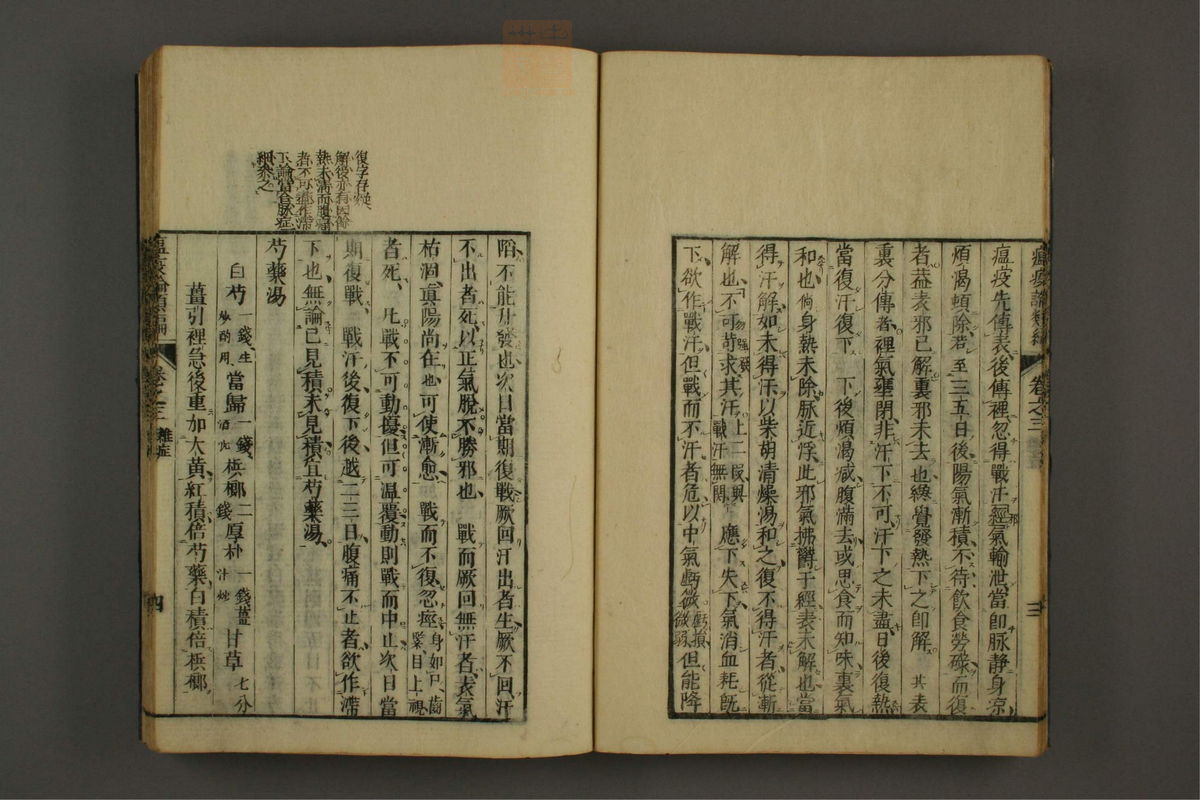 瘟疫論類編 卷之三 三
瘟疫先傳表後傳裡忽得戰汗經氣輸泄當即脉静身凉
煩渴頓除若至三五日後陽氣漸積不待飲食勞碌而復
者葢表邪已解裏邪未去也纔覺發熱下之即解 其表
裏分傳者裡氣壅閉非汗下不可汗下之未盡日後復熱
當復汗復下 下後煩渴减腹滿去或思食而知味裏氣
和也倘身熱未除脉近浮此邪氣拂鬱于經表未解也當
得汗解如未得汗以柴胡清燥湯和之復不得汗者從漸
解也不可苛求其汗 上二段與戰汗無關 應下失下氣消血耗旣
勿強發
下欲作戰汗但戰而不汗者危以中氣虧微 虧損微弱 但能降
陷不能升發也次日當期復戰厥回汗出者生厥不回汗
不出者死以正氣脫不勝邪也 戰而厥回無汗者表氣
枯涸真陽尚在也可使漸愈 戰而不復忽痙 身如尸齒緊目上視
者死 凡戰不可動擾但可温覆動則戰而中止次日當
期復戰 戰汗後復下後越二三日腹痛不止者欲作滯
下也無論已見積未見積宜芍藥湯
芍藥湯
白芍 一錢生炒酌用 當歸 一錢酒洗 檳榔 二錢 厚朴 一錢薑汁炒 甘草 七分
薑引裡急後重加大黄紅積倍芍藥白積倍檳榔
復字存疑
解後亦有因餘
熱未清而腹痛
者不可遽作滯
下論當合脉症
細叅之
瘟疫論類編 卷之三 雜症 四